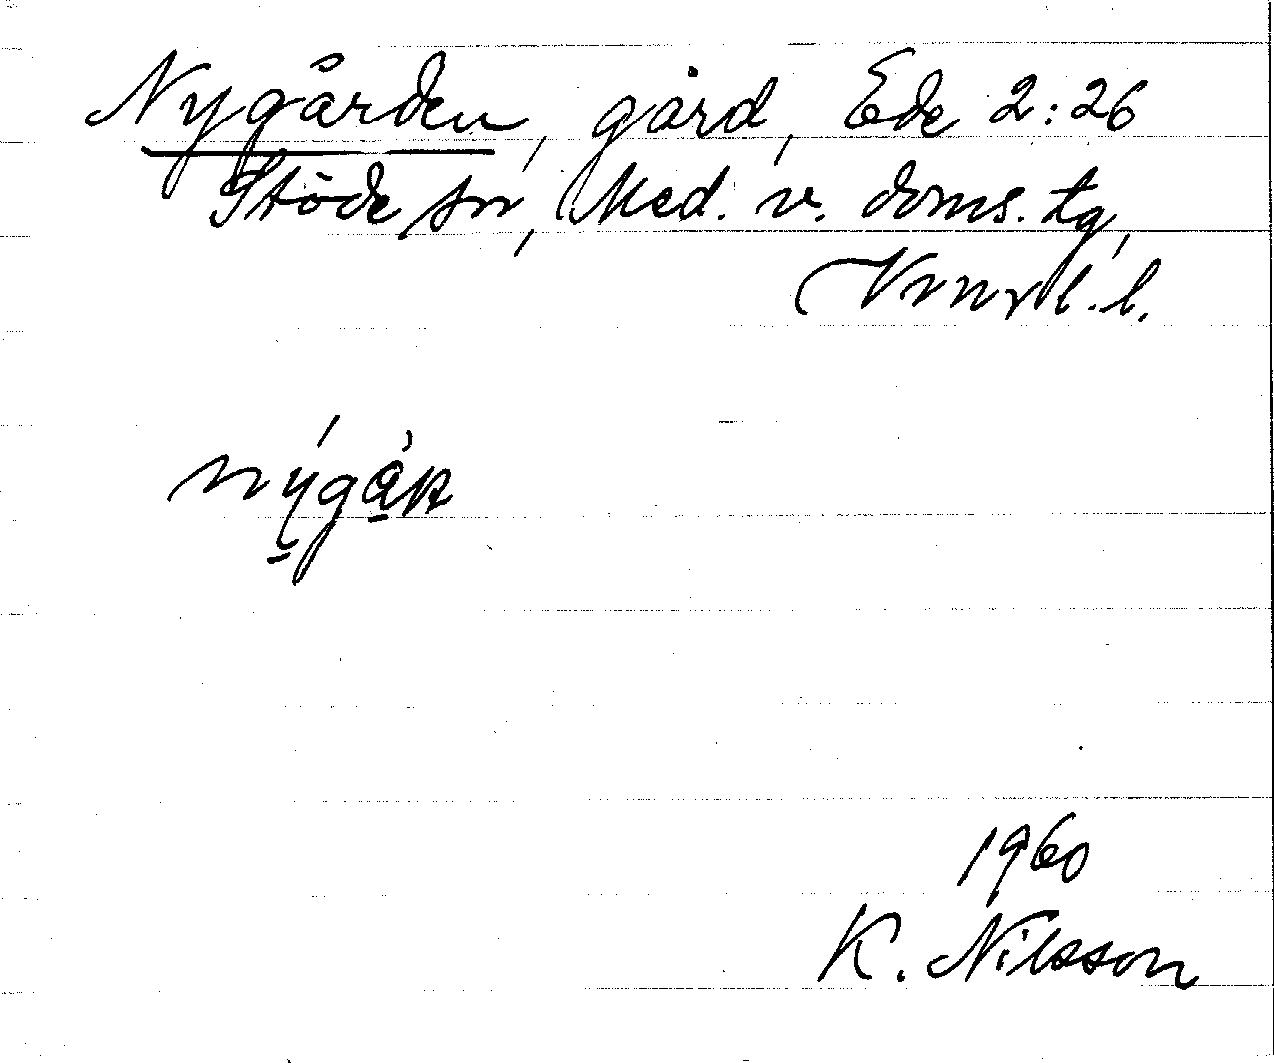 Nygården, gård, Ede 2:26
Stöde sn, Med. v. doms. tg,
Vnrl. l.
nýgàn
1960
K. Nilsson